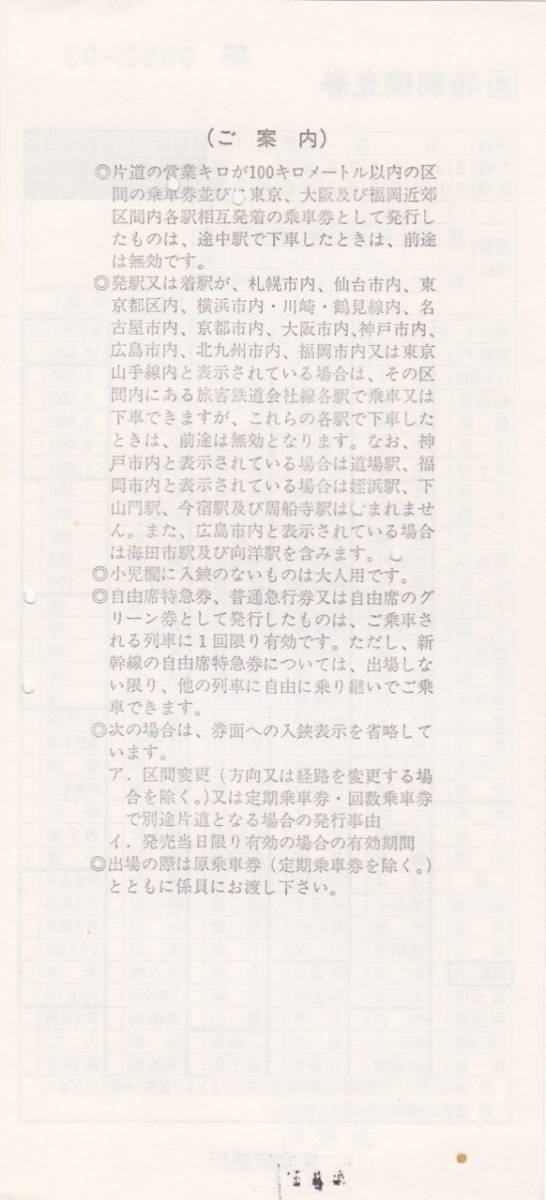 （ご 案 内）
◎片道の営業キロが100キロメートル以内の区
間の乗車券並びに東京、大阪及び福岡近郊
区間内各駅相互発着の乗車券として発行し
たものは、途中駅で下車したときは、前途
は無効です。
◎発駅又は着駅が、札幌市内、仙台市内、東
京都区内、横浜市内・川崎・鶴見線内、名
古屋市内、京都市内、大阪市内、神戸市内、
広島市内、北九州市内、福岡市内又は東京
山手線内と表示されている場合は、その区
間内にある旅客鉄道会社線各駅で乗車又は
下車できますが、これらの各駅で下車した
ときは、前途は無効となります。なお、神
戸市内と表示されている場合は道場駅、福
岡市内と表示されている場合は姪浜駅、下
山門駅、今宿駅及び周船寺駅は含まれませ
ん。また、広島市内と表示されている場合
は海田市駅及び向洋駅を含みます。
◎小児欄に入鋏のないものは大人用です。
◎自由席特急券、普通急行券又は自由席のグ
リーン券として発行したものは、ご乗車さ
れる列車に１回限り有効です。ただし、新
幹線の自由席特急券については、出場しな
い限り、他の列車に自由に乗り継いでご乗
車できます。
◎次の場合は、券面への入鋏表示を省略して
います。
ア．区間変更（方向又は経路を変更する場
合を除く。）又は定期乗車券・回数乗車券
で別途片道となる場合の発行事由
イ．発売当日限り有効の場合の有効期間
◎出場の際は原乗車券（定期乗車券を除く。）
とともに係員にお渡し下さい。